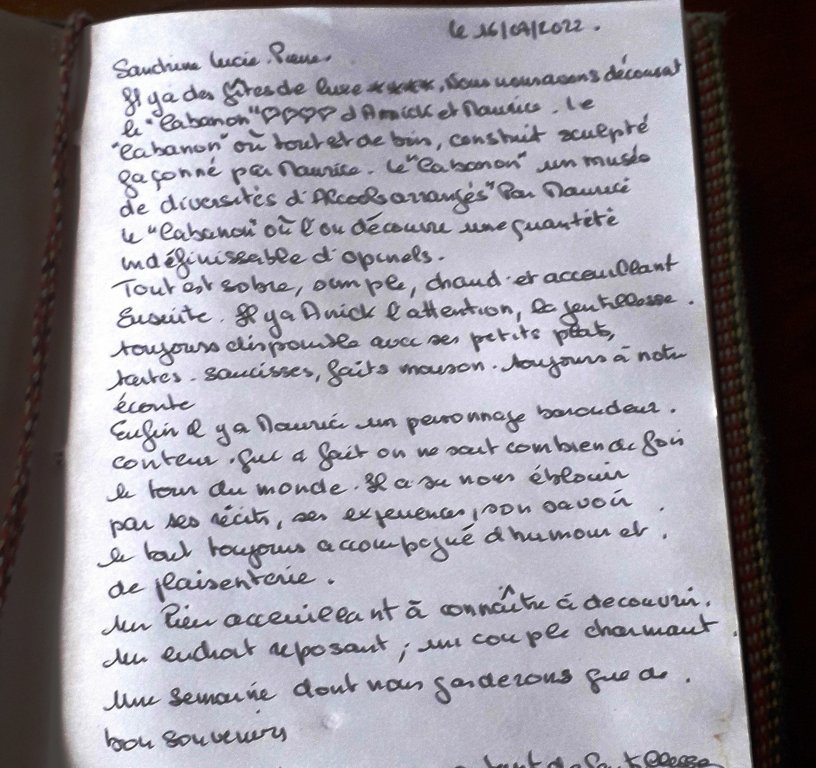 le 16/07/2022.
Sandrine Lucie. Pierre.
Il y a des gîtes de luxe ****, Nous nous avons découvert
le "Cabanon" ♡♡♡♡ d'Annick et Maurice. Le
"Cabanon" où tout est de bois, construit sculpté
façonné par Maurice. Le "Cabanon" un musée
de diversités d'Alcools arrangés" Par Maurice
le "Cabanon" où l'on découvre une quantité
indéfinissable d'opinels.
Tout est sobre, simple, chaud et acceuillant
Ensuite. Il y a Anick l'attention, la gentillesse.
toujours disponible avec ses petits plats,
tartes. saucisses, faits maison. toujours à notre
écoute
Enfin il y a Maurice un personnage baroudeur.
conteur. qui a fait on ne sait combien de fois
le tour du monde. Il a su nous éblouir
par ses récits, ses experiences, son savoir
le tout toujours accompagné d'humour et.
de plaisenterie.
Un lieu acceuillant à connaître à decouvrir.
Un endroit reposant ; un couple charmant
Une semaine dont nous garderons que de.
bon souvenirs
tant de gentillesse